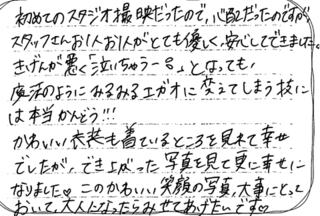 初めてのスタジオ撮映だったので、心配だったのですが
スタッフさんお1人お1人がとても優しく、安心してできました。
きげんが悪く「泣いちゃうーる」となっても、
魔法のようにみるみるエガオに変えてしまう技に
は本当かんどう!!!
かわいい衣装も着ているところを見れて幸せ
でしたが、でき上がった写真を見て更に幸せに
なりました♡このかわいい笑顔の写真、大事にとって
おいて、大人になったらみせてあげたいです♡